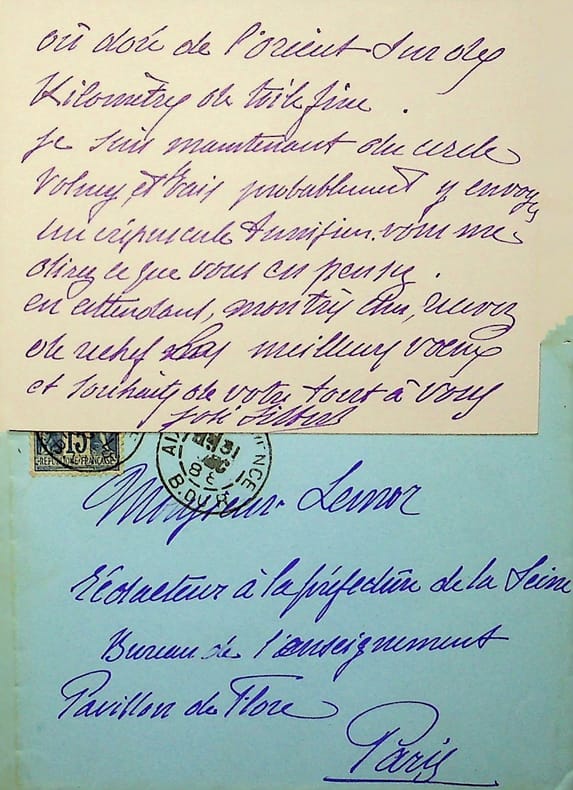 où doré de l'orient sur des
Kilomètres de toile fine.
je suis maintenant du cercle
Volney, et vais probablement y envoyer
un crépuscule tunisien. vous me
direz ce que vous en pensez.
en attendant, mon très cher, recevez
de rechef les meilleurs vœux
et souhaits de votre tout à vous
José Silbert
15
REPUBLIQUE FRANÇAISE
AI
31
B. DU R.
Monsieur Lenoz
Rédacteur à la préfecture de la Seine
Bureau de l'enseignement
Pavillon de Flore
Paris